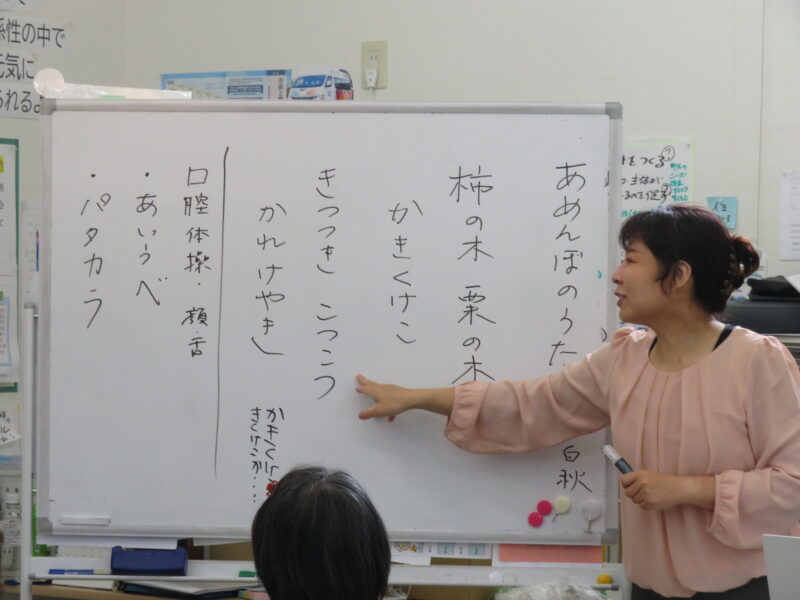 あめんぼのうた
白秋
柿の木 栗の木
かきくけこ
きつつき こつこつ
かれけやき
かきくけ
きくけこか・・・
口腔体操・顔・舌
・あいうべ
・パタカラ
係性の中で
元気に
られるよ
をつくる